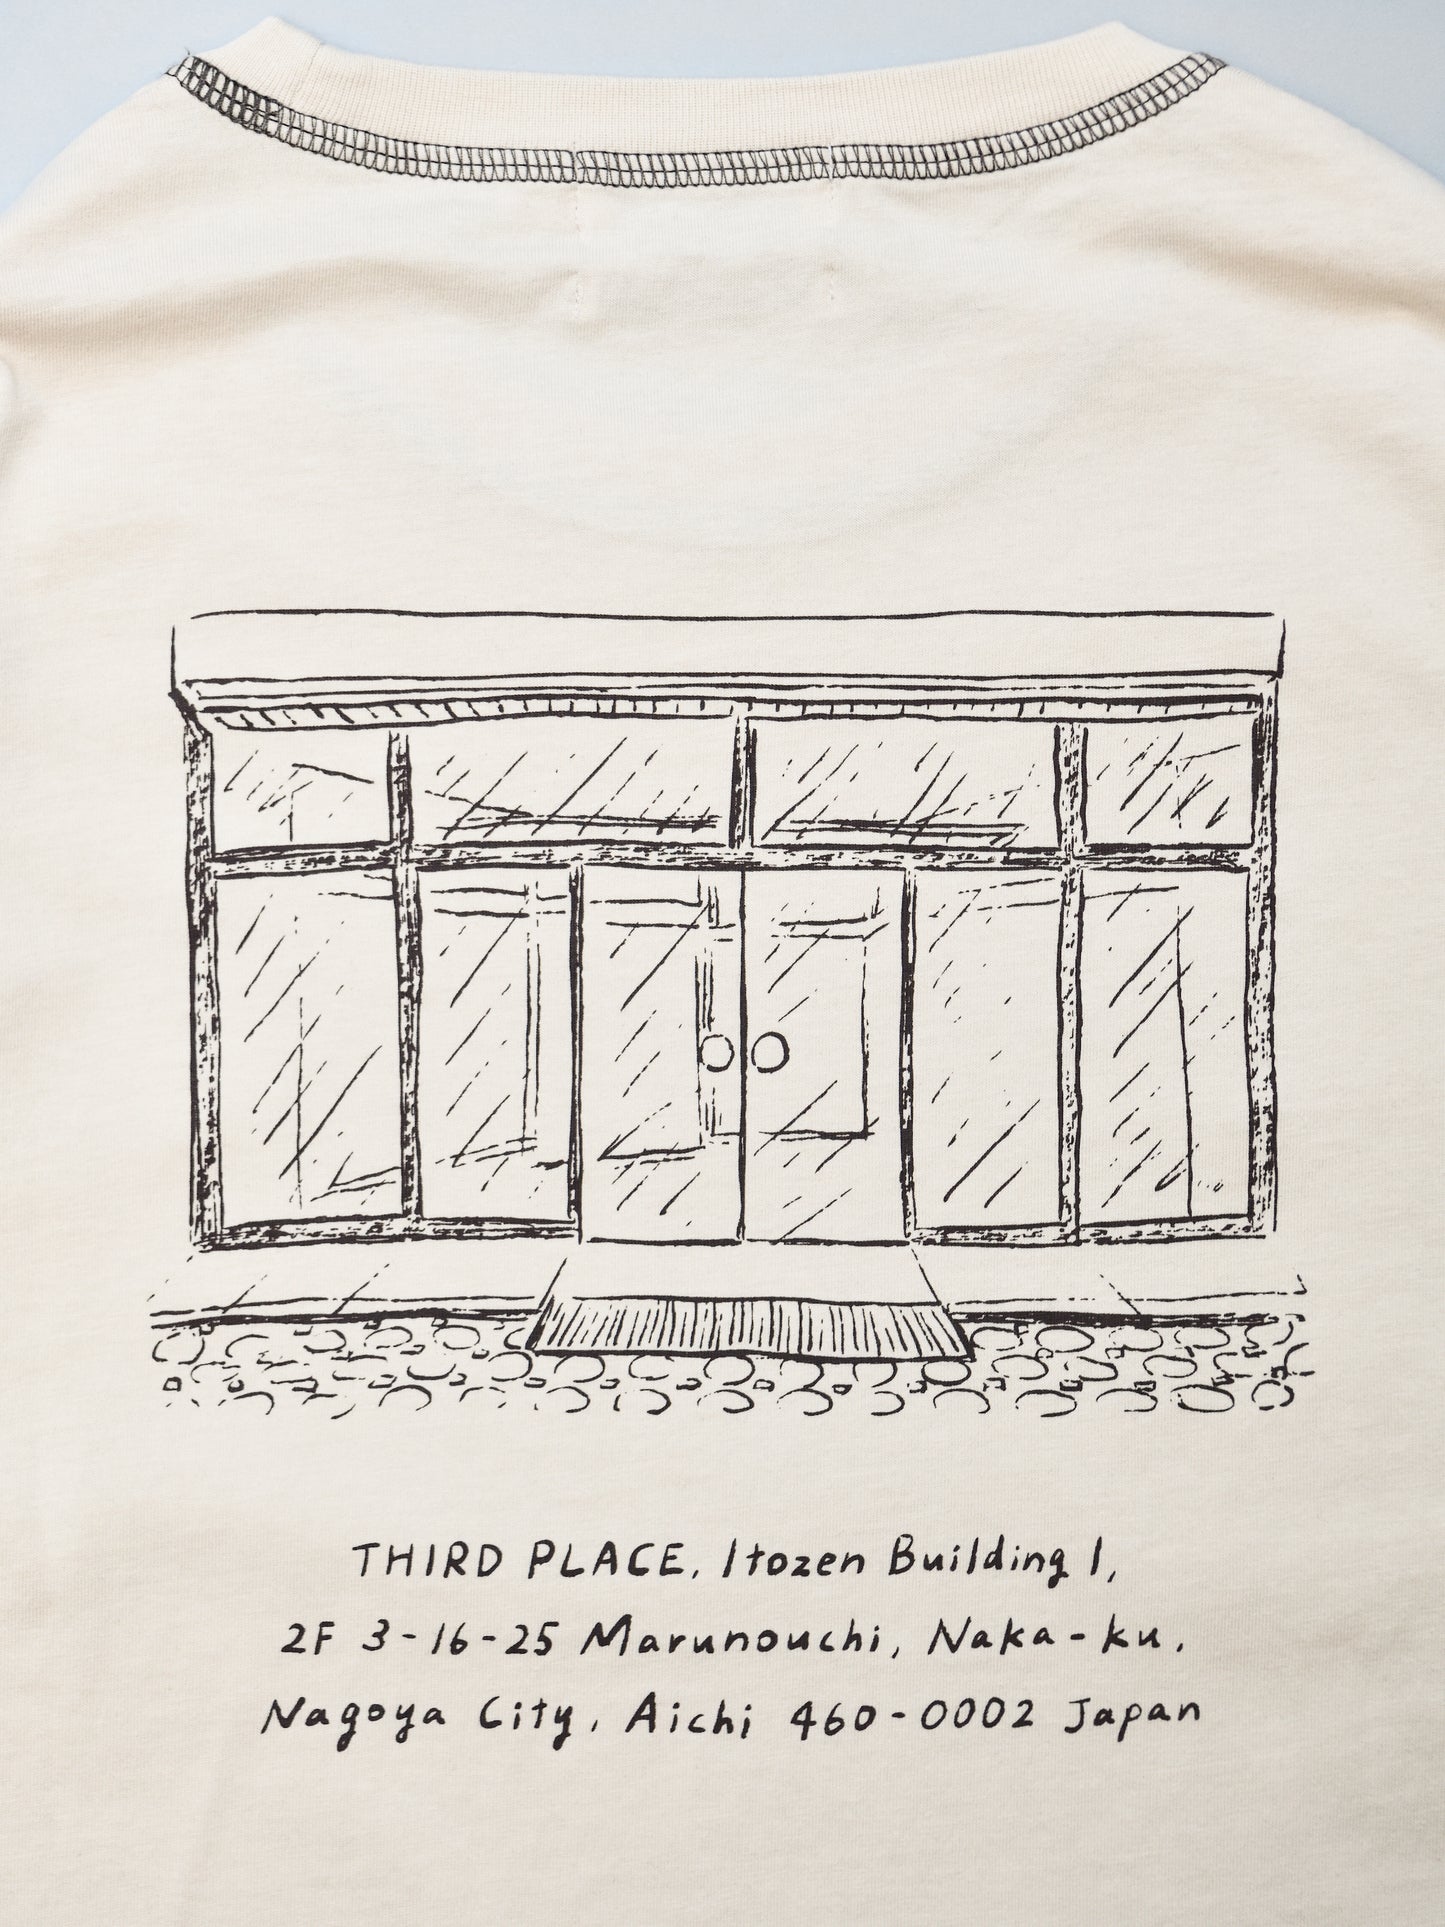 THIRD PLACE, Itozen Building 1,
2F 3-16-25 Marunouchi, Naka-ku,
Nagoya City, Aichi 460-0002 Japan